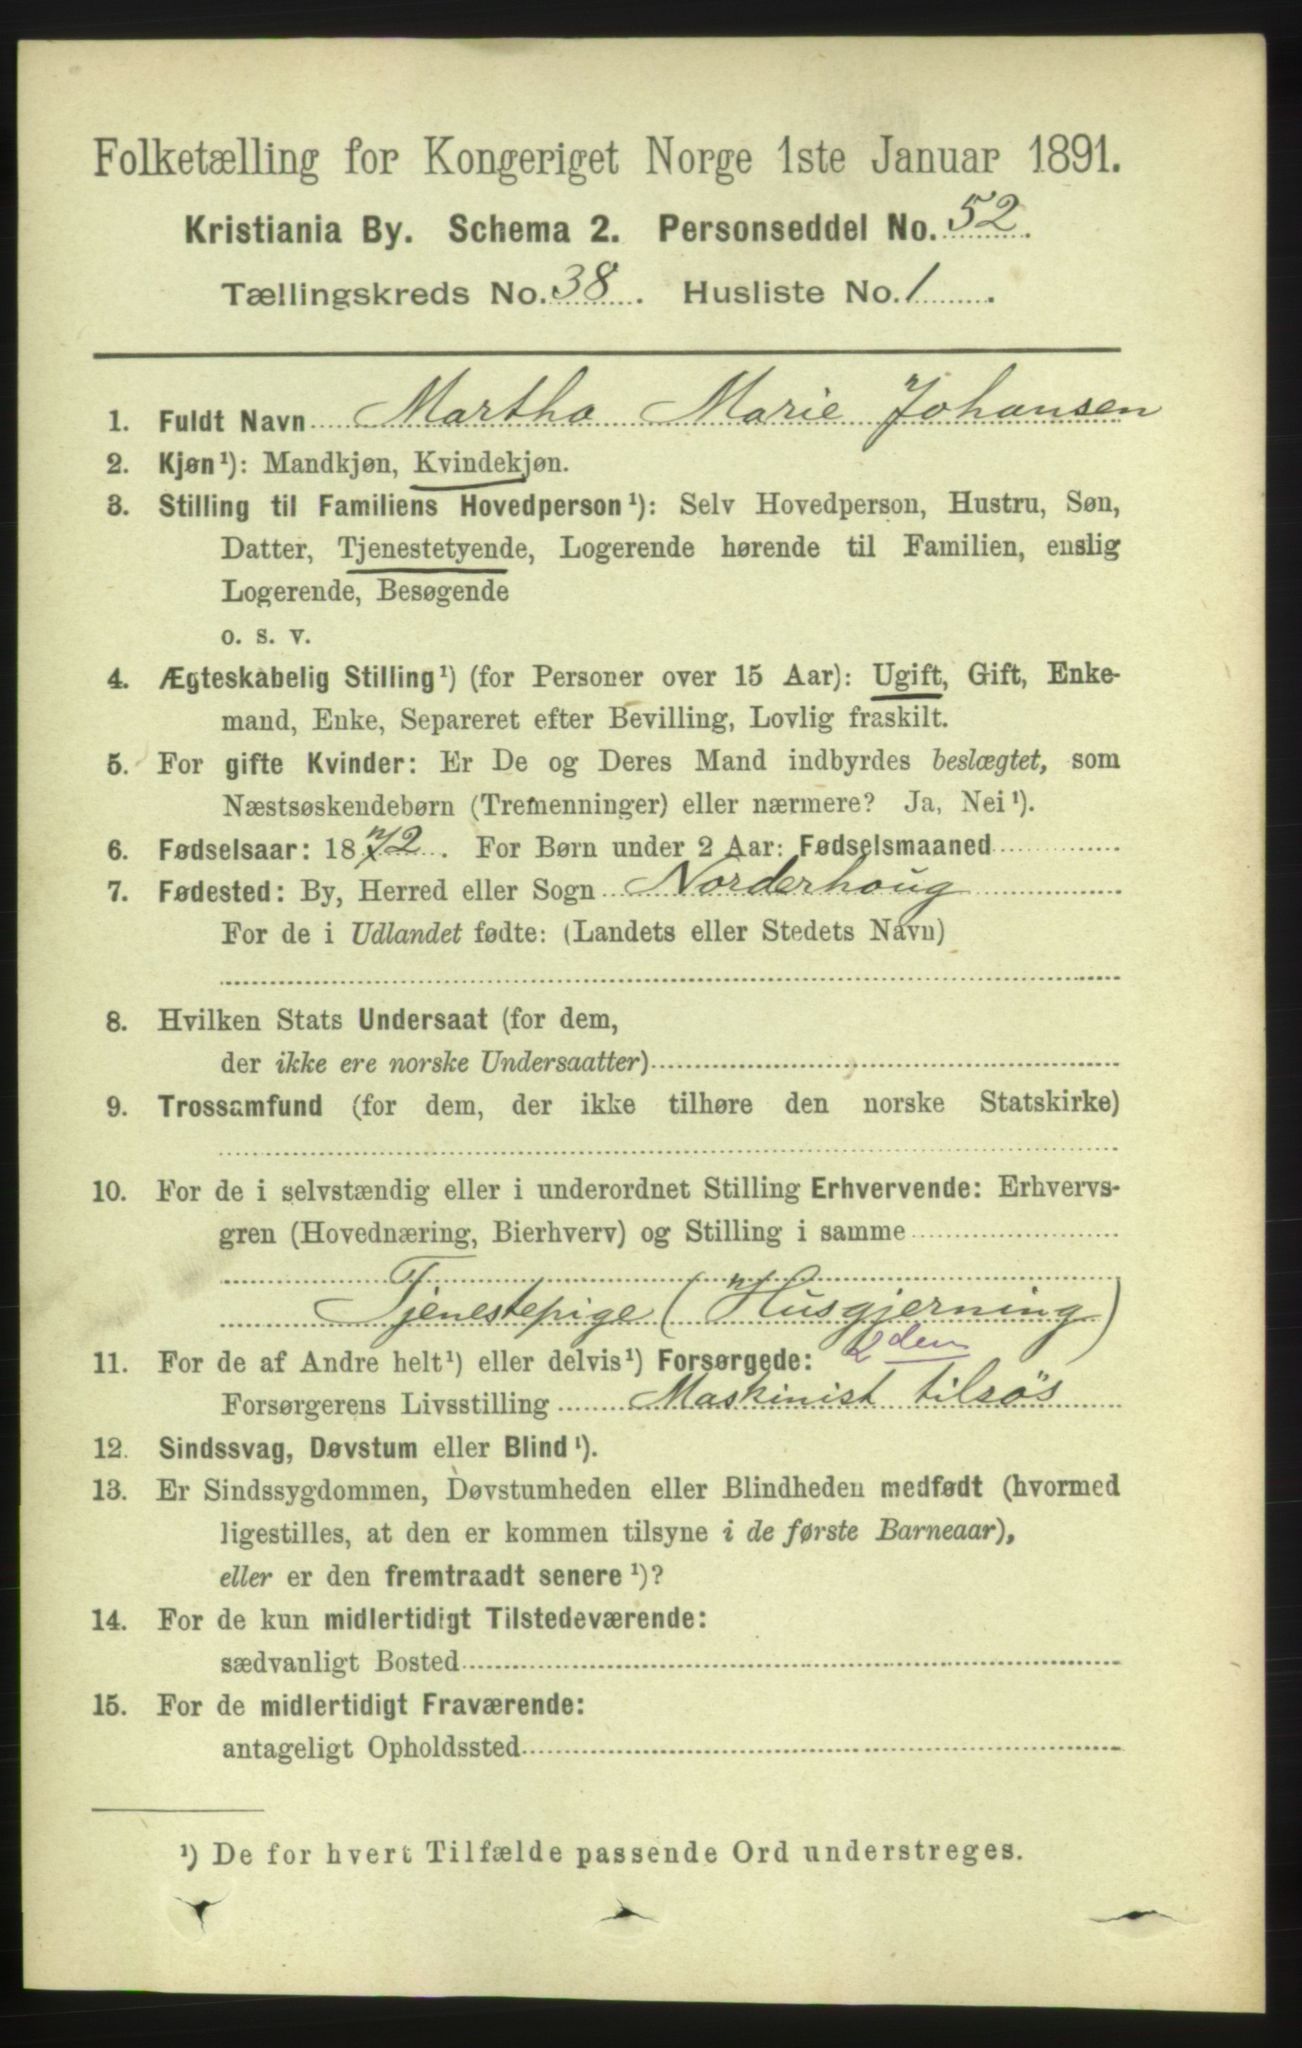 Folketælling for Kongeriget Norge 1ste Januar 1891.
Kristiania By. Schema 2. Personseddel No. 52.
Tællingskreds No. 38. Husliste No. 1.
1. Fuldt Navn Martha Marie Johansen
2. Kjøn¹): Mandkjøn, Kvindekjøn.
3. Stilling til Familiens Hovedperson¹): Selv Hovedperson, Hustru, Søn,
Datter, Tjenestetyende, Logerende hørende til Familien, enslig
Logerende, Besøgende
o. s. v.
4. Ægteskabelig Stilling¹) (for Personer over 15 Aar): Ugift, Gift, Enke-
mand, Enke, Separeret efter Bevilling, Lovlig fraskilt.
5. For gifte Kvinder: Er De og Deres Mand indbyrdes beslægtet, som
Næstsøskendebørn (Tremenninger) eller nærmere? Ja, Nei¹).
6. Fødselsaar: 1872. For Børn under 2 Aar: Fødselsmaaned
7. Fødested: By, Herred eller Sogn Norderhoug
For de i Udlandet fødte: (Landets eller Stedets Navn)
8. Hvilken Stats Undersaat (for dem,
der ikke ere norske Undersaatter)
9. Trossamfund (for dem, der ikke tilhøre den norske Statskirke)
10. For de i selvstændig eller i underordnet Stilling Erhvervende: Erhvervs-
gren (Hovednæring, Bierhverv) og Stilling i samme
Tjenestepige (Husgjerning)
11. For de af Andre helt¹) eller delvis¹) Forsørgede: 2den
Forsørgerens Livsstilling Maskinist tilsøs
12. Sindssvag, Døvstum eller Blind¹).
13. Er Sindssygdommen, Døvstumheden eller Blindheden medfødt (hvormed
ligestilles, at den er kommen tilsyne i de første Barneaar),
eller er den fremtraadt senere¹)?
14. For de kun midlertidigt Tilstedeværende:
sædvanligt Bosted
15. For de midlertidigt Fraværende:
antageligt Opholdssted
¹) De for hvert Tilfælde passende Ord understreges.